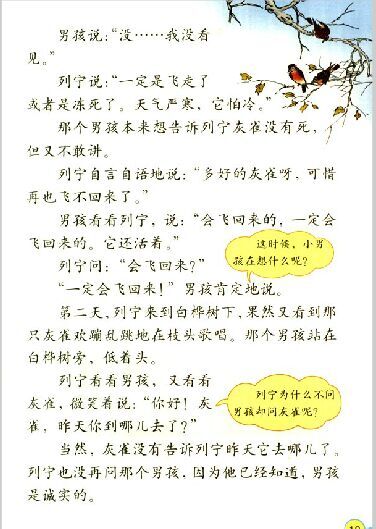 男孩说：“没……我没看
见。”
列宁说：“一定是飞走了
或者是冻死了。天气严寒，它怕冷。”
那个男孩本来想告诉列宁灰雀没有死，
但又不敢讲。
列宁自言自语地说：“多好的灰雀呀，可惜
再也飞不回来了。”
男孩看看列宁，说：“会飞回来的，一定会
飞回来的。它还活着。”
这时候，小男
孩在想什么呢？
列宁问：“会飞回来？”
“一定会飞回来！”男孩肯定地说。
第二天，列宁来到白桦树下，果然又看到那
只灰雀欢蹦乱跳地在枝头歌唱。那个男孩站在
白桦树旁，低着头。
列宁看看男孩，又看看
灰雀，微笑着说：“你好！灰
雀，昨天你到哪儿去了？”
列宁为什么不问
男孩却问灰雀呢？
当然，灰雀没有告诉列宁昨天它去哪儿了。
列宁也没再问那个男孩，因为他已经知道，男孩
是诚实的。